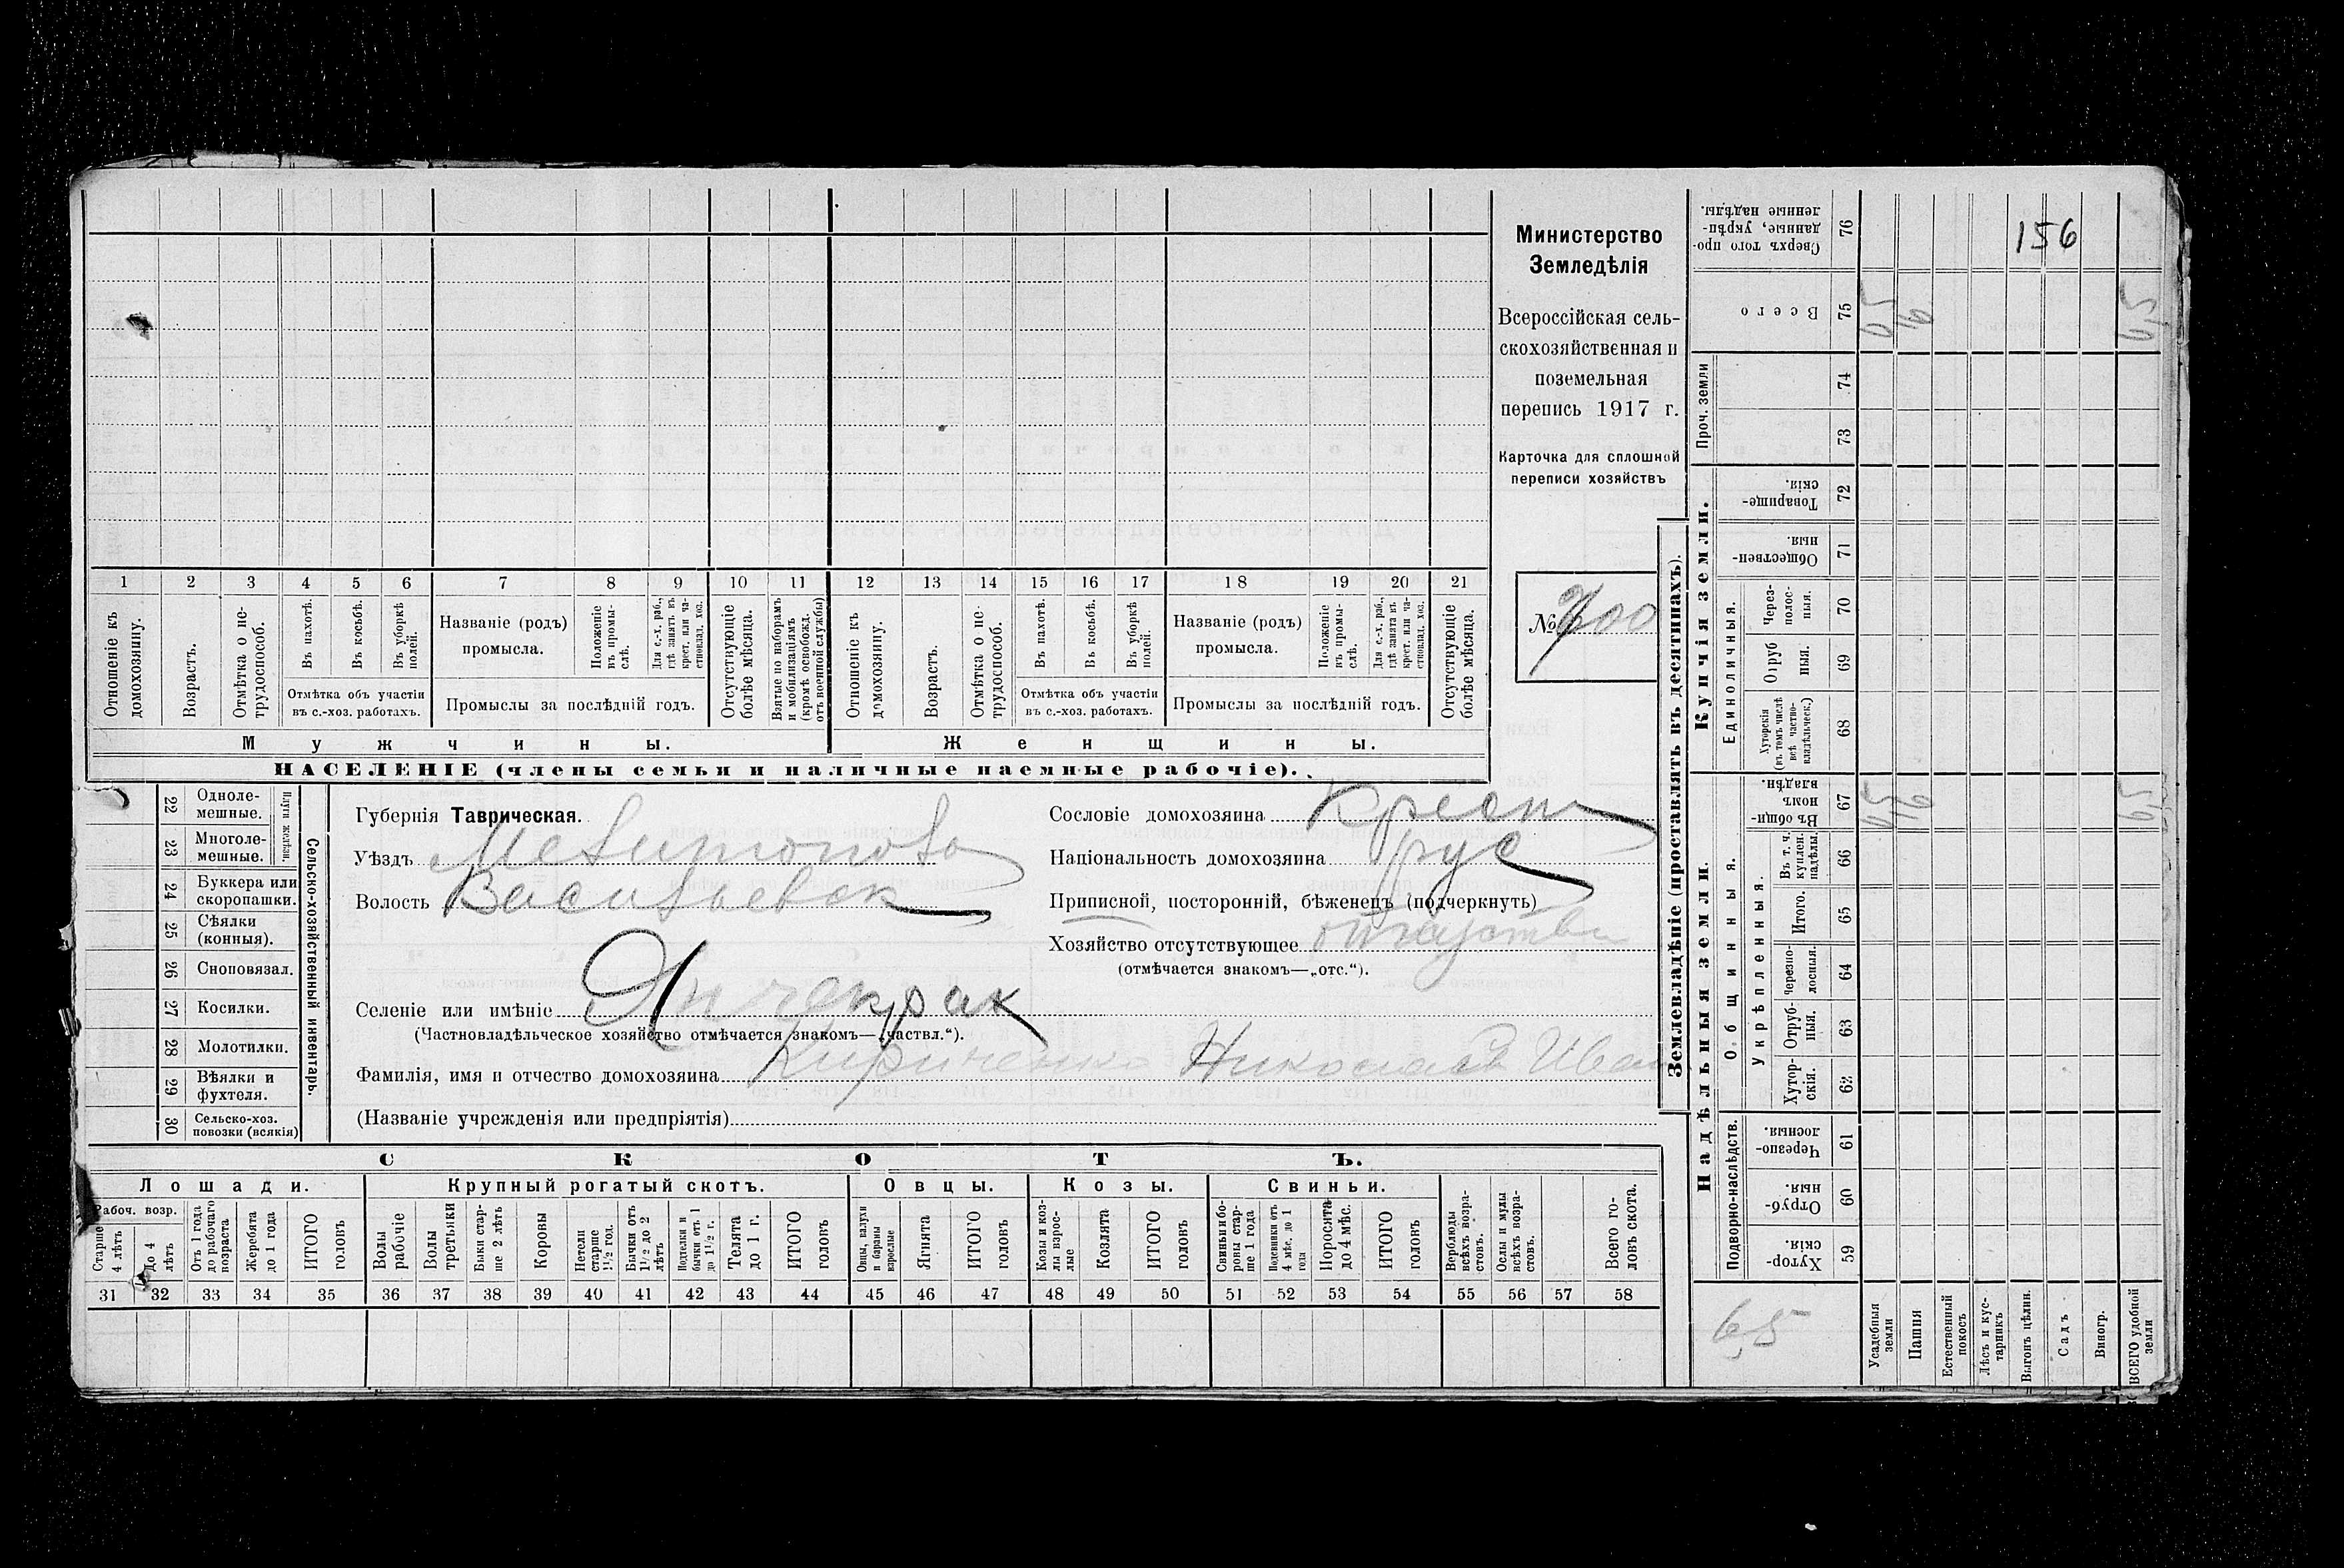 Министерство
Земледѣлія
Всероссійская сель-
скохозяйственная и
поземельная
перепись 1917 г.
Карточка для сплошной
переписи хозяйствъ
№ 700
1 2 3 4 5 6 7 8 9 10 11 12 13 14 15 16 17 18 19 20 21
Отношеніе къ домохозяину.
Возрастъ.
Отмѣтка о не-трудоспособ.
Въ пахотѣ.
Въ косьбѣ.
Въ уборкѣ полей.
Отмѣтка объ участіи
въ с.-хоз. работахъ.
Названіе (родъ)
промысла.
Положеніе въ промы-слѣ.
Для с.-х. раб., гдѣ занятъ въ крест. или ча-стновлад. хоз.
Промыслы за послѣдній годъ.
Отсутствующіе болѣе мѣсяца.
Взятые по наборамъ и мобилизаціямъ (кромѣ освобожд. отъ военной службы)
Отношеніе къ домохозяину.
Возрастъ.
Отмѣтка о не-трудоспособ.
Въ пахотѣ.
Въ косьбѣ.
Въ уборкѣ полей.
Отмѣтка объ участіи
въ с.-хоз. работахъ.
Названіе (родъ)
промысла.
Положеніе въ промы-слѣ.
Для с.-х. раб., гдѣ занята въ крест. или ча-стновлад. хоз.
Промыслы за послѣдній годъ.
Отсутствующіе болѣе мѣсяца.
Мужчины.
Женщины.
НАСЕЛЕНІЕ (члены семьи и наличные наемные рабочіе).
Сельско-хозяйственный инвентарь.
Плуги желѣзн.
22 Одноле-мешные.
23 Многоле-мешные.
24 Буккера или скоропашки.
25 Сѣялки (конныя).
26 Сноповязал.
27 Косилки.
28 Молотилки.
29 Вѣялки и фухтеля.
30 Сельско-хоз. повозки (всякія)
Губернія Таврическая.
Уѣздъ Мелитополь
Волость Васильевск
Селеніе или имѣніе Янчекрак
(Частновладѣльческое хозяйство отмѣчается знакомъ—„частвл.“).
Фамилія, имя и отчество домохозяина Кириченко Николай Иван
(Названіе учрежденія или предпріятія)
Сословіе домохозяина Крест
Національность домохозяина рус
Приписной, посторонній, бѣженецъ (подчеркнуть)
Хозяйство отсутствующее
(отмѣчается знакомъ—„отс.“).
СКОТЪ.
Лошади.
Крупный рогатый скотъ.
Овцы.
Козы.
Свиньи.
Рабоч. возр.
Старше 4 лѣтъ
До 4 лѣтъ
Отъ 1 года до рабочаго возраста
Жеребята до 1 года
ИТОГО головъ
Волы рабочіе
Волы третьяки
Быки стар-ше 2 лѣтъ
Коровы
Нетели старше 1½ год.
Бычки отъ 1½ до 2 лѣтъ
Подтелки и бычки отъ 1 до 1½ г.
Телята до 1 г.
ИТОГО головъ
Овцы, валухи и бараны взрослые
Ягнята
ИТОГО головъ
Козы и коз-лы взрос-лые
Козлята
ИТОГО головъ
Свиньи и бо-ровы стар-ше 1 года
Подсвинки отъ 4 мѣс. до 1 года
Поросята до 4 мѣс.
ИТОГО головъ
Верблюды всѣхъ возра-стовъ.
Ослы и мулы всѣхъ возра-стовъ.
Всего го-ловъ скота.
31 32 33 34 35 36 37 38 39 40 41 42 43 44 45 46 47 48 49 50 51 52 53 54 55 56 57 58
Землевладѣніе (проставлять въ десятинахъ).
Купчія земли.
Надѣльныя земли.
Сверхъ того про-данные, укрѣп-ленные надѣлы. 76
156
Всего 75
65
6
65
Проч. земли
74
73
Товарище-скія. 72
Обществен-ныя. 71
Единоличныя.
Через-полос-ныя. 70
Отруб ныя. 69
Хуторскія (въ томъ числѣ всѣ частно-владѣльческ.) 68
Общинныя.
Въ общи-номъ владѣн. 67
65
6
65
Укрѣпленныя.
Въ т. ч. куплен. надѣлы 66
Итого. 65
Черезпо-лосныя. 64
Отруб-ныя. 63
Хутор-скія. 62
Подворно-наслѣдств.
Черезпо-лосныя. 61
Отруб-ныя. 60
Хутор-скія. 59
6,5
Усадебныя земли
Пашня
Естественный покосъ
Лѣсъ и кус-тарникъ
Выгонъ цѣлин.
Садъ
Виногр.
ВСЕГО удобной земли